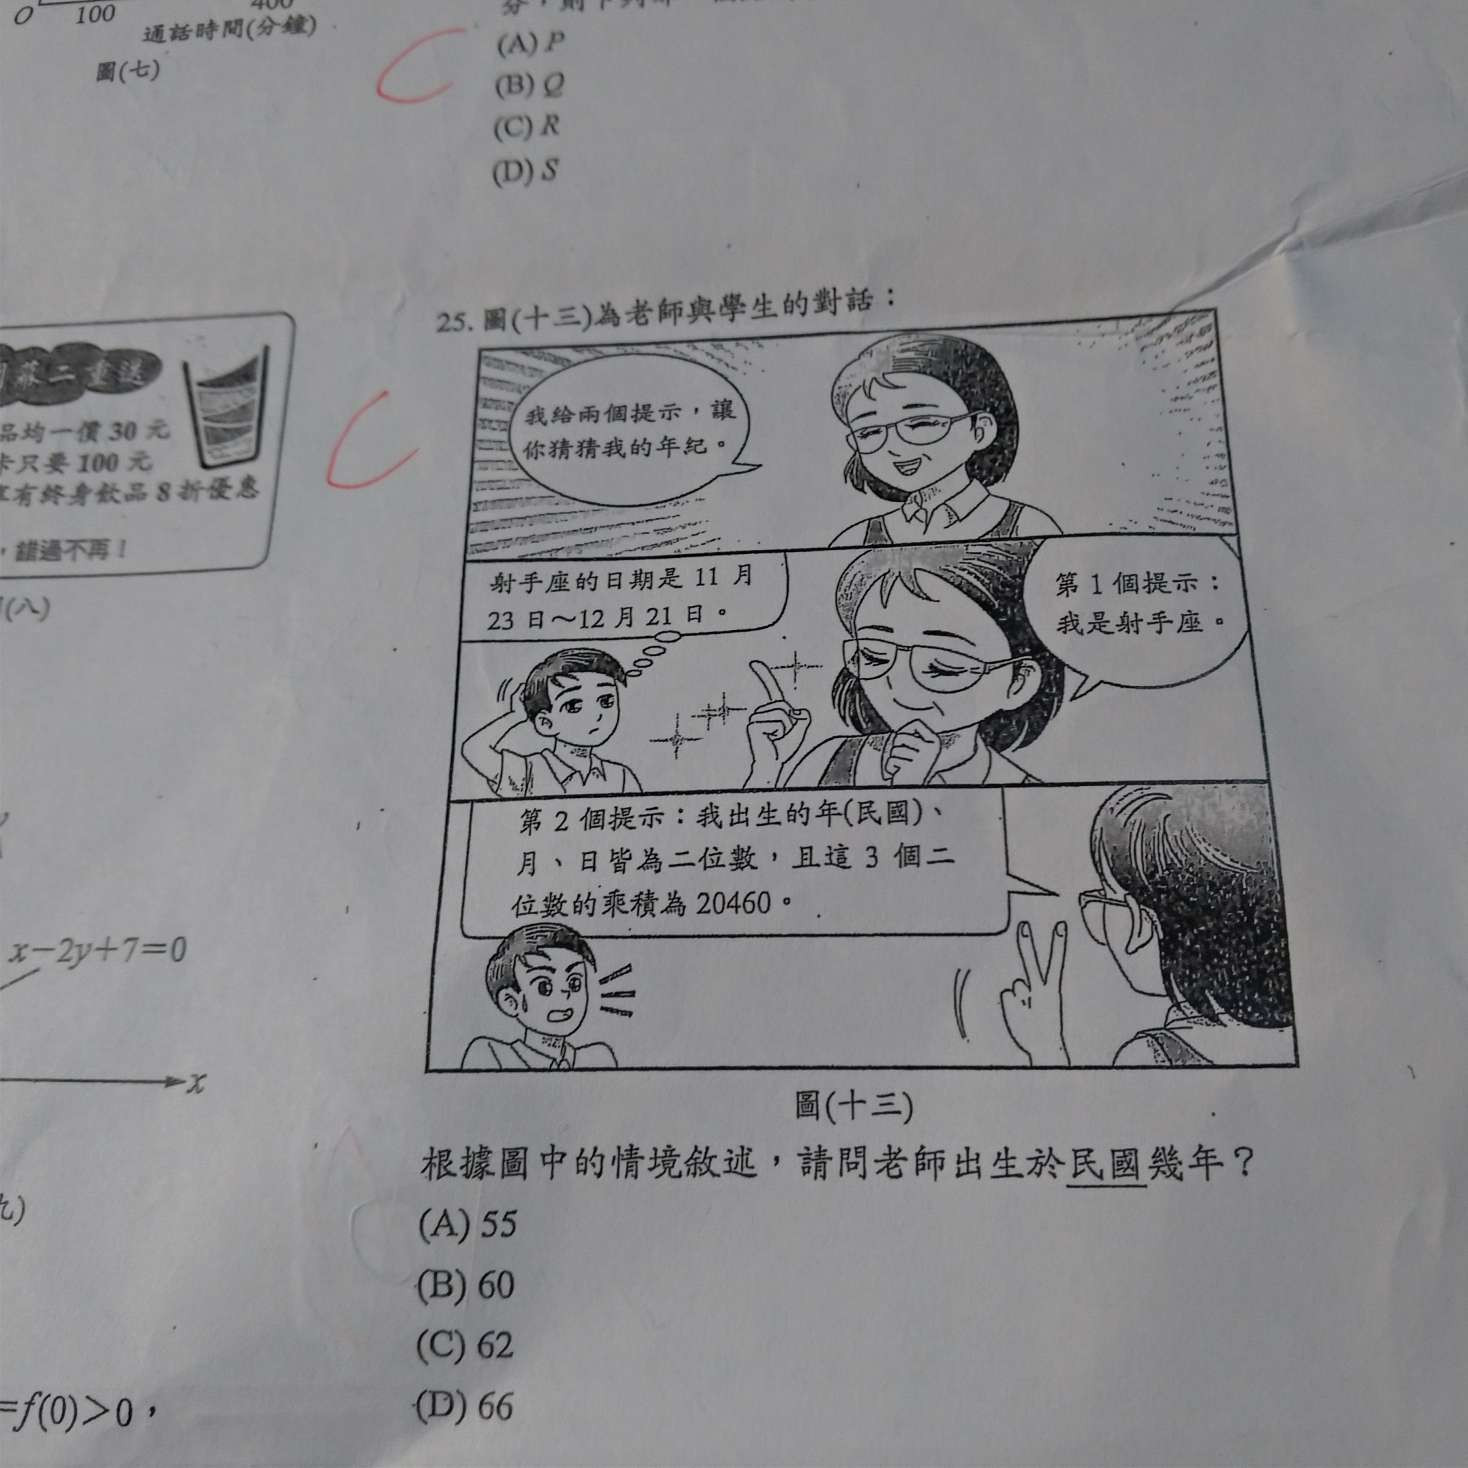 O 100 400
通話時間(分鐘)
圖(七)
(A) P
(B) Q
(C) R
(D) S
品均一價 30 元
卡只要 100 元
有終身飲品 8 折優惠
，錯過不再！
(八)
x－2y＋7＝0
x
=f(0)＞0，
25. 圖(十三)為老師與學生的對話：
我給兩個提示，讓
你猜猜我的年紀。
射手座的日期是 11 月
23 日～12 月 21 日。
第 1 個提示：
我是射手座。
第 2 個提示：我出生的年(民國)、
月、日皆為二位數，且這 3 個二
位數的乘積為 20460。
圖(十三)
根據圖中的情境敘述，請問老師出生於民國幾年？
(A) 55
(B) 60
(C) 62
(D) 66